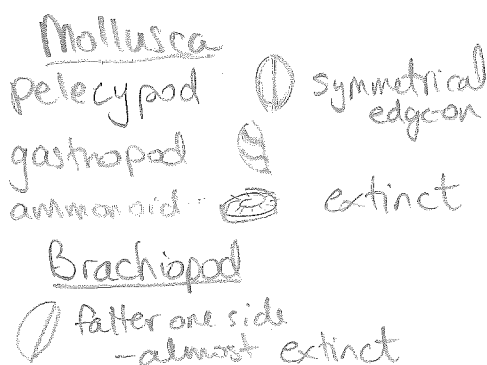 Mollusca
pelecypod symmetrical
edge-on
gastropod
ammonoid extinct
Brachiopod
fatter one side
- almost extinct